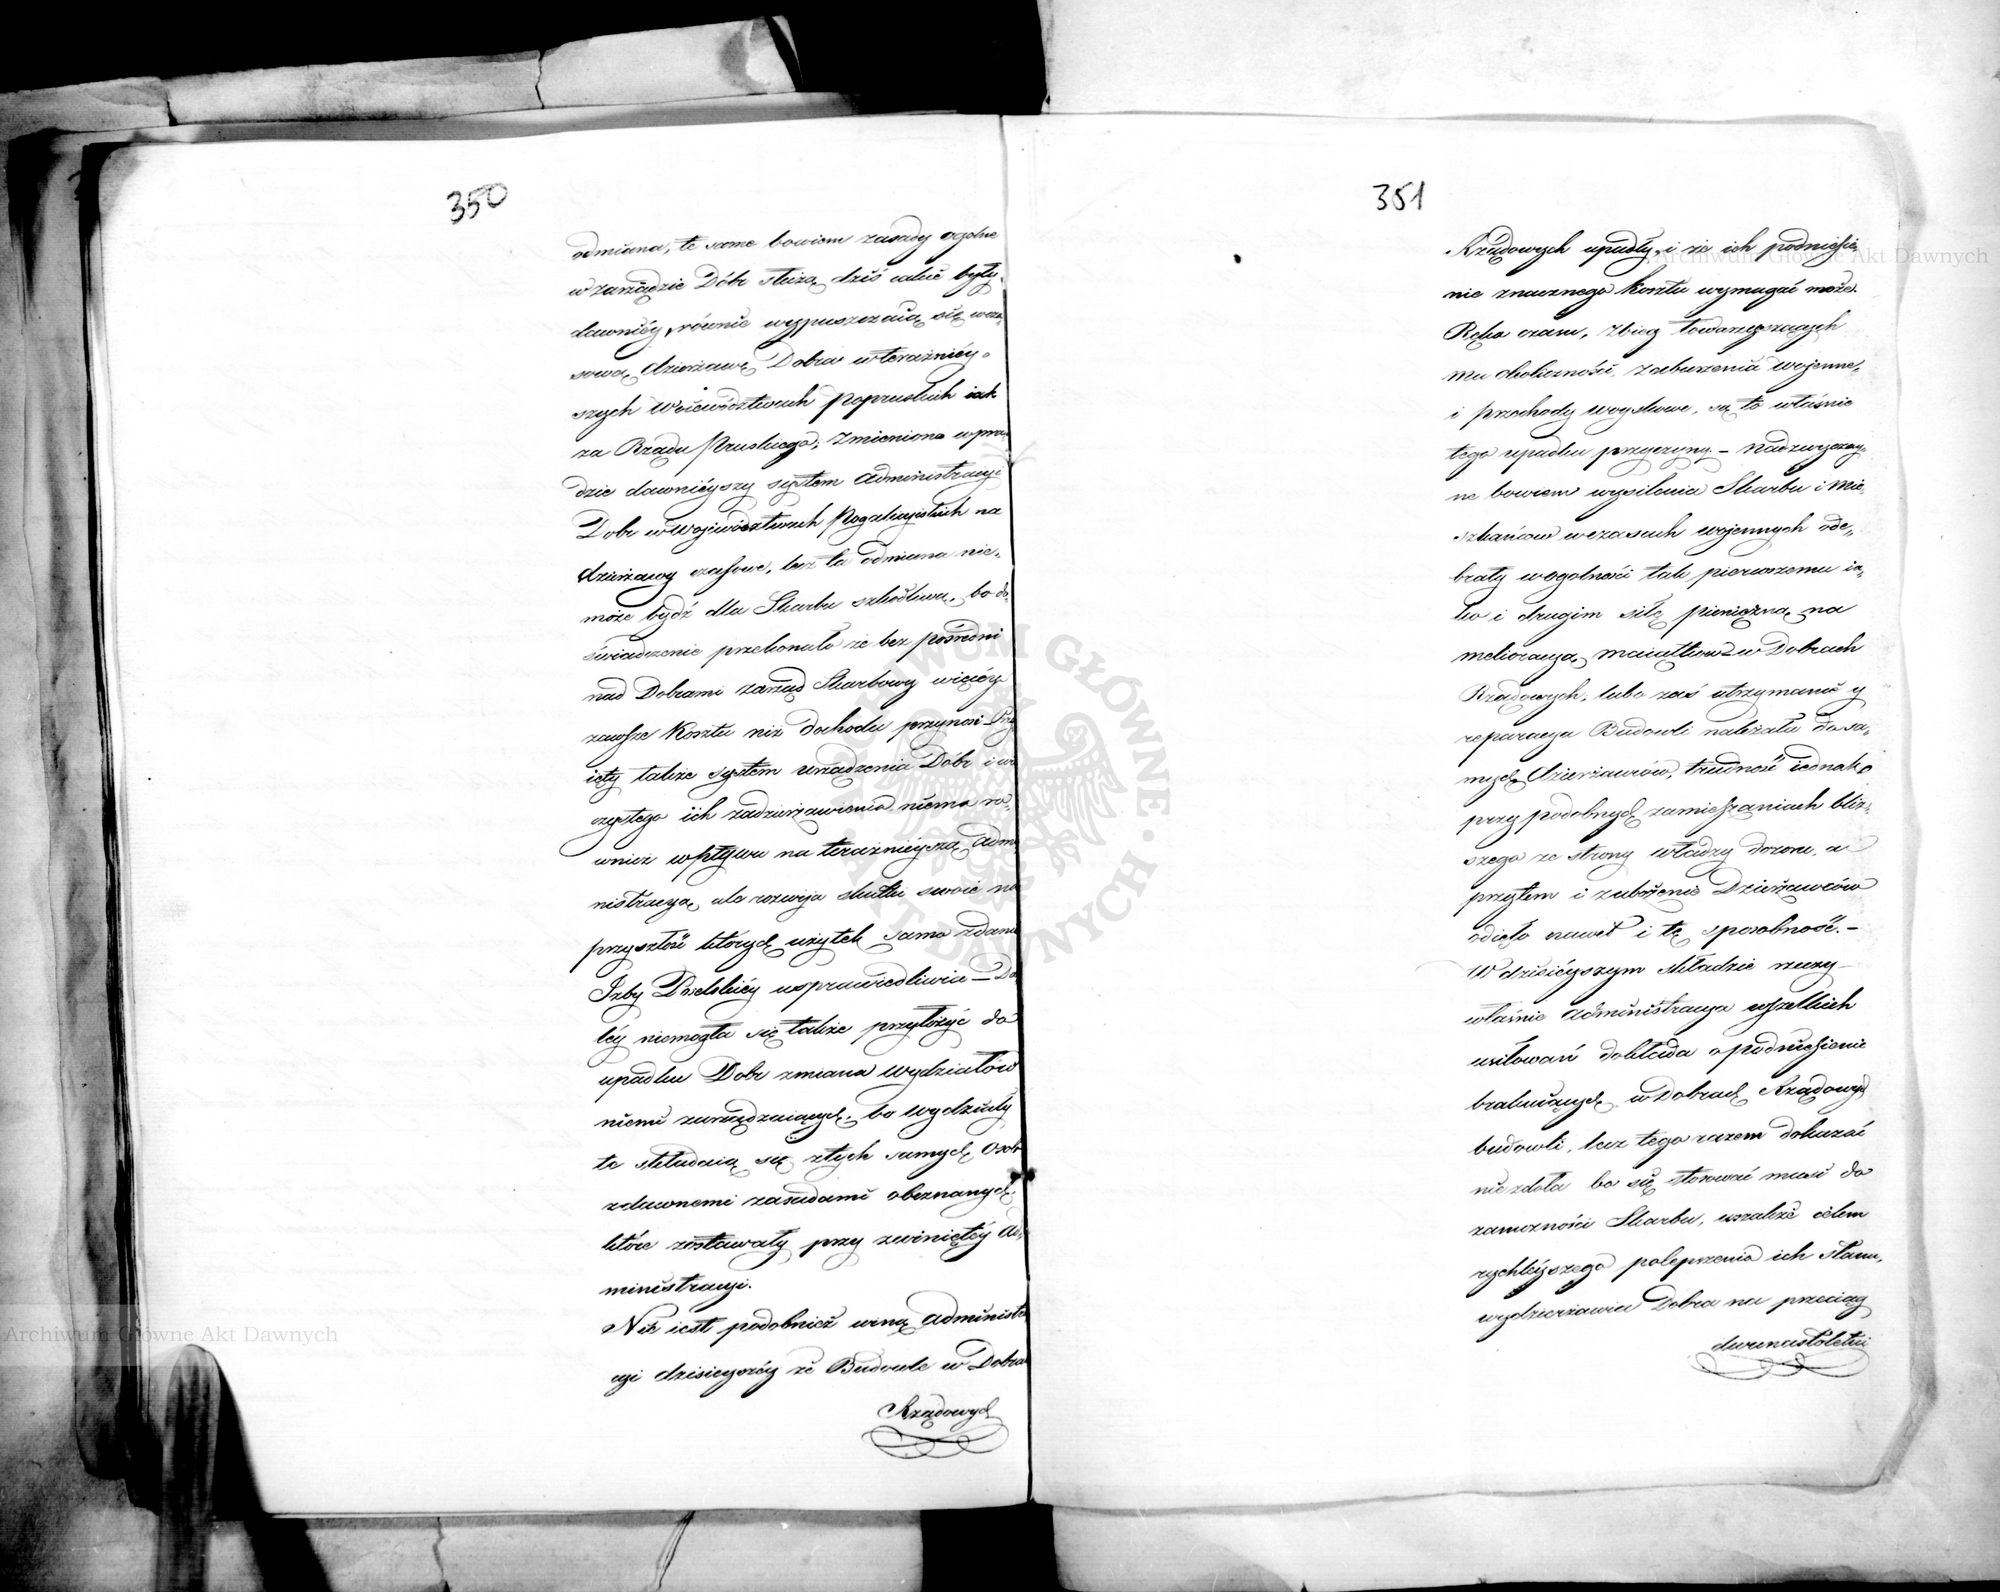 350
odmiana, te same bowiem zasady ogolne
w zarządzie Dóbr służą dziś jakie były
dawniéy, równie wypuszczaią się wcza„
sową dzierżawę Dobra w teraźniéy„
szych Woiewództwach popruskich iak
za Rządu Pruskiego; Zmieniono wpraw
dzie dawniéyszy system Administracyi
Dobr w Wojewodztwach Pogalicyjskich na
dzierżawy czasowe, lecz ta odmiana nie„
może bydź dla Skarbu szkodliwa, bo do„
świadczenie przekonało że bez pośredni
nad Dobrami zarząd Skarbowy więcéy
zawsze Kosztu niż dochodu przynosi – Przy
ięty także system urządzenia Dóbr i wie
czystego ich zadzierżawienia niema ró„
wnież wpływu na teraźnieyszą Admi
nistracyą, ale rozwija skutki swoie na
przyszłość których użytek samo zdanie
Izby Poselskiéy usprawiedliwia – Da
léy niemogła się także przyłożyć do
upadku Dobr zmiana wydziałów
niemi zarządzaiących, bo wydziały
te składaią się z tych samych Osób
z dawnemi zasadami obeznanych,
które zostawały przy zwiniętéy Ad„
ministracyi.
Nie iest podobnież winą Administra
cyi dzisieyszéy że Budowle w Dobrach
Rządowych
351
Rządowych upadły, i że ich podniesie„
nie znacznego Kosztu wymagać może.
Ręka czasu, zbieg towarzyszących
mu okoliczności, zaburzenia wojenne,
i przechody woyskowe, są to właśnie
tego upadku przyczyny. – Nadzwyczay„
ne bowiem wysilenia Skarbu i Mie„
szkańców w czasach wojennych ode„
brały w ogolności tak pierwszemu ia„
ko i drugim siłę pieniężną na
melioracyą maiątków w Dobrach
Rządowych, lubo zaś utrzymanie y
reparacya Budowli należała do sa„
mych Dzierżawców, trudność iednak
przy podobnych zamieszaniach bliż„
szego ze strony władzy dozoru, a
przytem i zubożenie Dzierżawców
odięło nawet i tę sposobność. –
W dzisiéyszym składzie rzeczy
właśnie Administracya wszelkich
usiłowań dokłada o podniesienie
brakuiących w Dobrach Rządowych
budowli, lecz tego razem dokazać
nie zdoła bo się stosować musi do
zamożności Skarbu, wszakże celem
rychléyszego polepszenia ich stanu,
wydzierżawia Dobra na przeciąg
dwunastoletni
Archiwum Główne Akt Dawnych
Archiwum Główne Akt Dawnych
ARCHIWUM GŁÓWNE AKT DAWNYCH